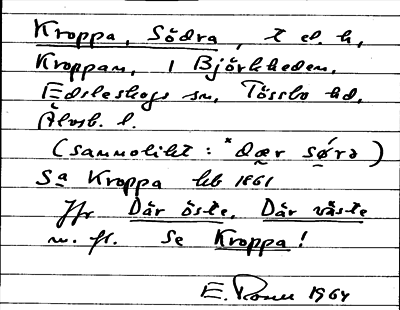 Kroppa, Södra, t el. h,
Kroppan, i Björkheden,
Edsleskogs sn, Tössbo hd,
Älvsb. l.
(sannolikt: *dær sǿ̣rə)
Sa Kroppa hb 1861
Jfr Där öste, Där väste
m. fl. Se Kroppa!
E. 1964